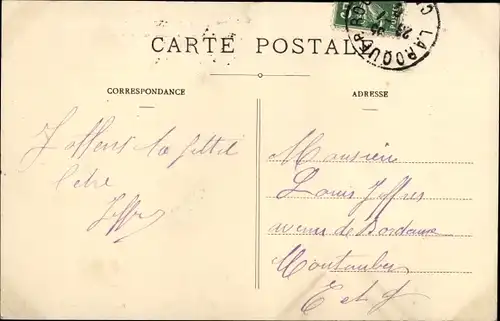 CARTE POSTALE
LAROQUE
CORRESPONDANCE
ADRESSE
J'attens ta petite
letre
Jeffres
Monsieur
Louis Jeffres
avenue de Bordeaux
Montauban
T et G